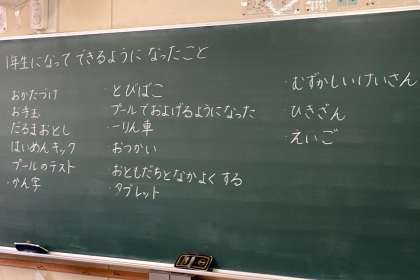 1年生になって できるように なったこと
おかたづけ
お手玉
だるまおとし
はいめんキック
プールのテスト
・かん字
・とびばこ
・プールでおよげるようになった
・一りん車
・おつかい
・おともだちとなかよくする
・タブレット
・むずかしいけいさん
・ひきざん
・えいご